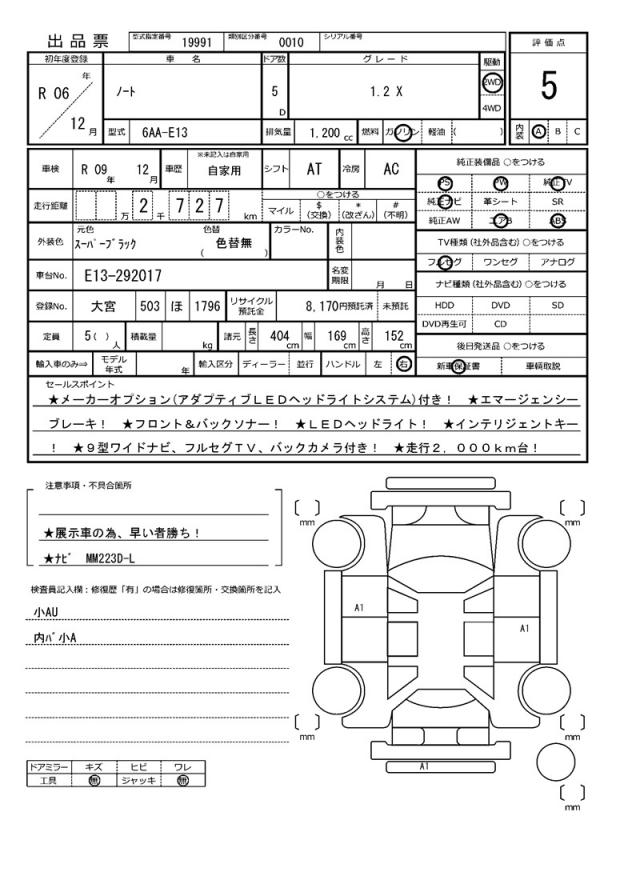 出品票 型式指定番号 19991 類別区分番号 0010 シリアル番号
評価点
5
内装 A B C
初年度登録 車名 ドア数 グレード 駆動
R 06 年 12 月 ノート 5 D 1.2 X 2WD 4WD
型式 6AA-E13 排気量 1.200 cc 燃料 ガソリン 軽油 ( )
車検 R 09 年 12 月 車歴 ※未記入は自家用 自家用 シフト AT 冷房 AC
走行距離 万 2 千 7 2 7 km ○をつける マイル $ (交換) * (改ざん) # (不明)
外装色 元色 スーパーブラック 色替 ( 色替無 ) カラーNo. 内装色
車台No. E13-292017 名変期限 月 日
登録No. 大宮 503 ほ 1796 リサイクル預託金 8,170円預託済 未預託
定員 5( ) 人 積載量 kg 諸元 長さ 404 cm 幅 169 cm 高さ 152 cm
輸入車のみ⇒ モデル年式 年 輸入区分 ディーラー 並行 ハンドル 左 右
純正装備品 ○をつける
PS PW 純正TV
純正ナビ 革シート SR
純正AW エアB ABS
TV種類 (社外品含む) ○をつける
フルセグ ワンセグ アナログ
ナビ種類 (社外品含む) ○をつける
HDD DVD SD
DVD再生可 CD
後日発送品 ○をつける
新車保証書 車輌取説
セールスポイント
★メーカーオプション(アダプティブLEDヘッドライトシステム)付き! ★エマージェンシー
ブレーキ! ★フロント&バックソナー! ★LEDヘッドライト! ★インテリジェントキー
! ★9型ワイドナビ、フルセグTV、バックカメラ付き! ★走行2,000km台!
注意事項・不具合箇所
★展示車の為、早い者勝ち!
★ナビ MM223D-L
検査員記入欄:修復歴「有」の場合は修復箇所・交換箇所を記入
小AU
内バ小A
ドアミラー キズ ヒビ ワレ
工具 無 ジャッキ 無
[ ] mm
[ ] mm
A1
A1
[ ] mm
[ ] mm
A1
[ ] mm